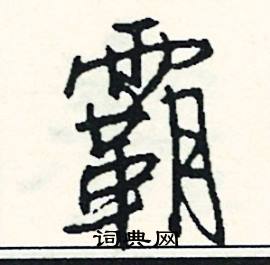 霸
词典网